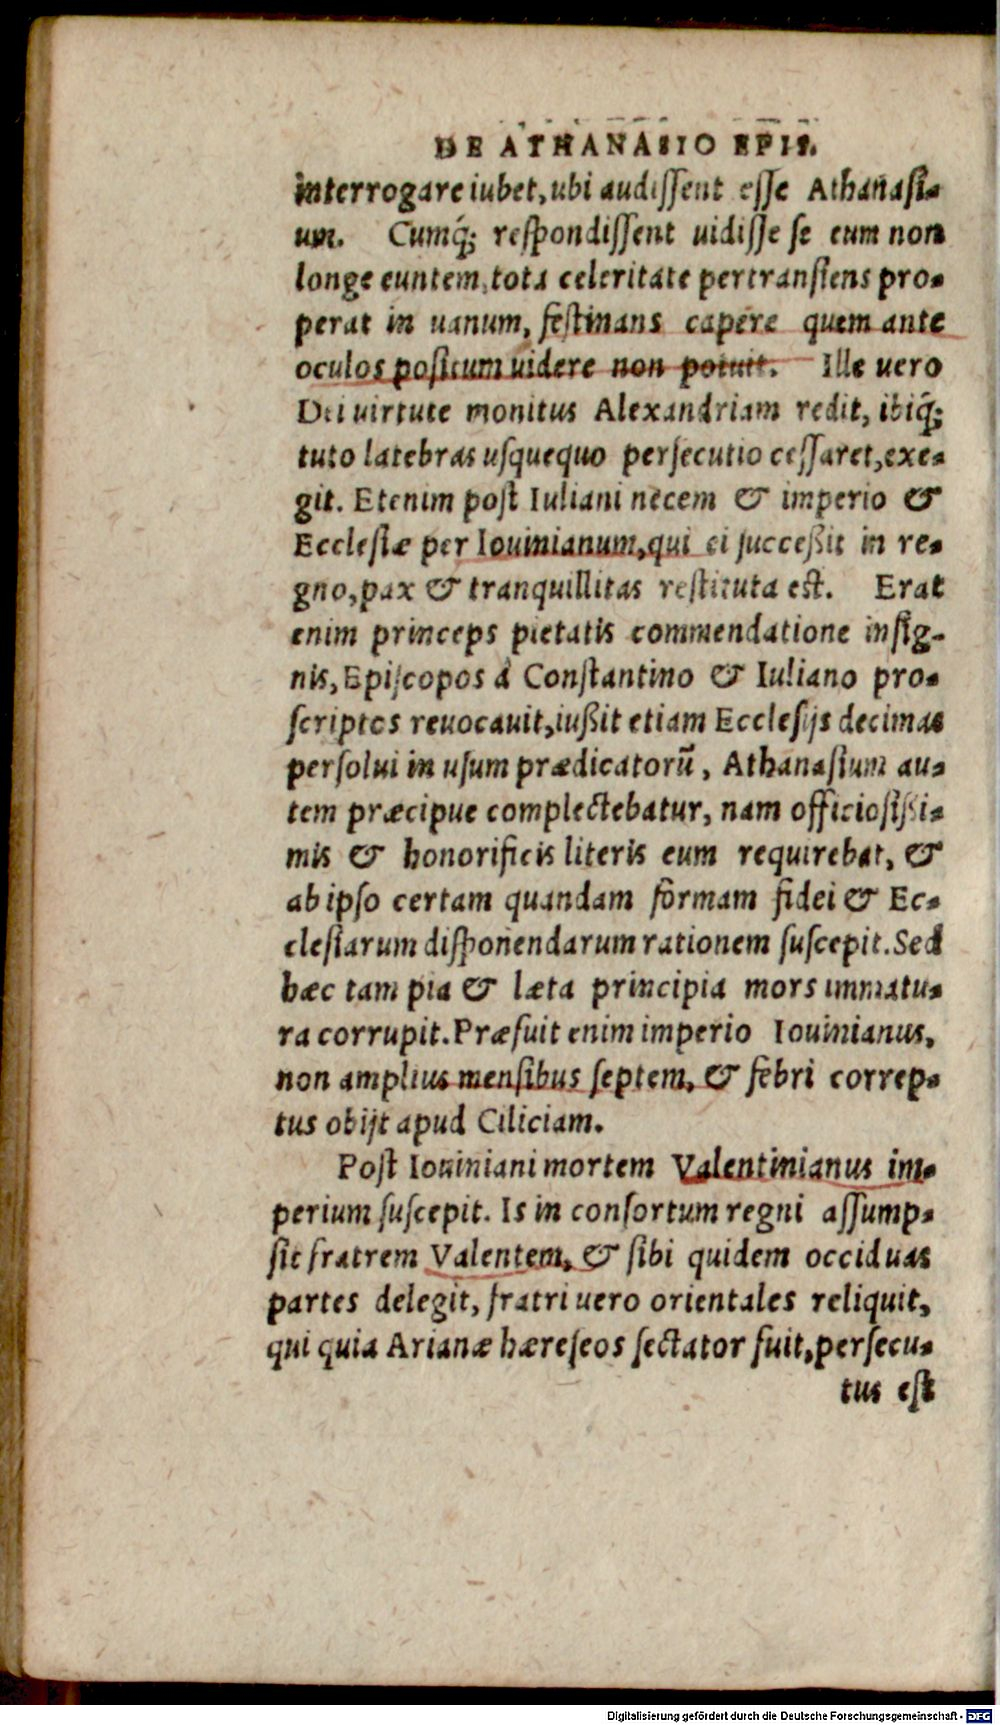 DE ATHANASIO EPIS.
interrogare iubet, ubi audissent esse Athanasi-
um. Cumq́; respondissent uidisse se eum non
longe euntem, tota celeritate pertransiens pro-
perat in uanum, festinans capere quem ante
oculos positum uidere non potuit. Ille uero
Dei uirtute monitus Alexandriam redit, ibiq́;
tuto latebras usquequo persecutio cessaret, exe-
git. Etenim post Iuliani necem & imperio &
Ecclesiæ per Iouinianum, qui ei successit in re-
gno, pax & tranquillitas restituta est. Erat
enim princeps pietatis commendatione insig-
nis, Episcopos á Constantino & Iuliano pro-
scriptos reuocauit, iußit etiam Ecclesijs decimas
persolui in usum prædicatorũ, Athanasium au-
tem præcipue complectebatur, nam officiosißi-
mis & honorificis literis eum requirebat, &
ab ipso certam quandam formam fidei & Ec-
clesiarum disponendarum rationem suscepit. Sed
hæc tam pia & læta principia mors immatu-
ra corrupit. Præfuit enim imperio Iouinianus,
non amplius mensibus septem, & febri correp-
tus obijt apud Ciliciam.
Post Iouiniani mortem Valentinianus im-
perium suscepit. Is in consortum regni assump-
sit fratrem Valentem, & sibi quidem occiduas
partes delegit, fratri uero orientales reliquit,
qui quia Arianæ hæreseos sectator fuit, persecu-
tus est
Digitalisierung gefördert durch die Deutsche Forschungsgemeinschaft - DFG